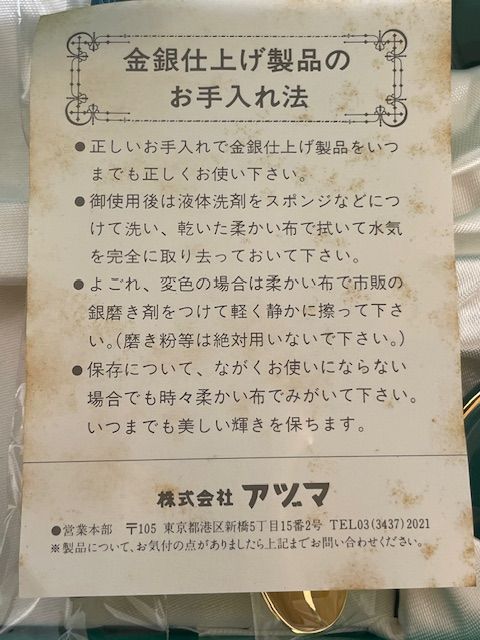 金銀仕上げ製品の
お手入れ法
●正しいお手入れで金銀仕上げ製品をいつ
までも正しくお使い下さい。
●御使用後は液体洗剤をスポンジなどにつ
けて洗い、乾いた柔かい布で拭いて水気
を完全に取り去っておいて下さい。
●よごれ、変色の場合は柔かい布で市販の
銀磨き剤をつけて軽く静かに擦って下さ
い。(磨き粉等は絶対用いないで下さい。)
●保存について、ながくお使いにならない
場合でも時々柔かい布でみがいて下さい。
いつまでも美しい輝きを保ちます。
株式会社 アヅマ
●営業本部 〒105 東京都港区新橋5丁目15番2号 TEL03(3437)2021
※製品について、お気付の点がありましたら上記までお問い合わせください。